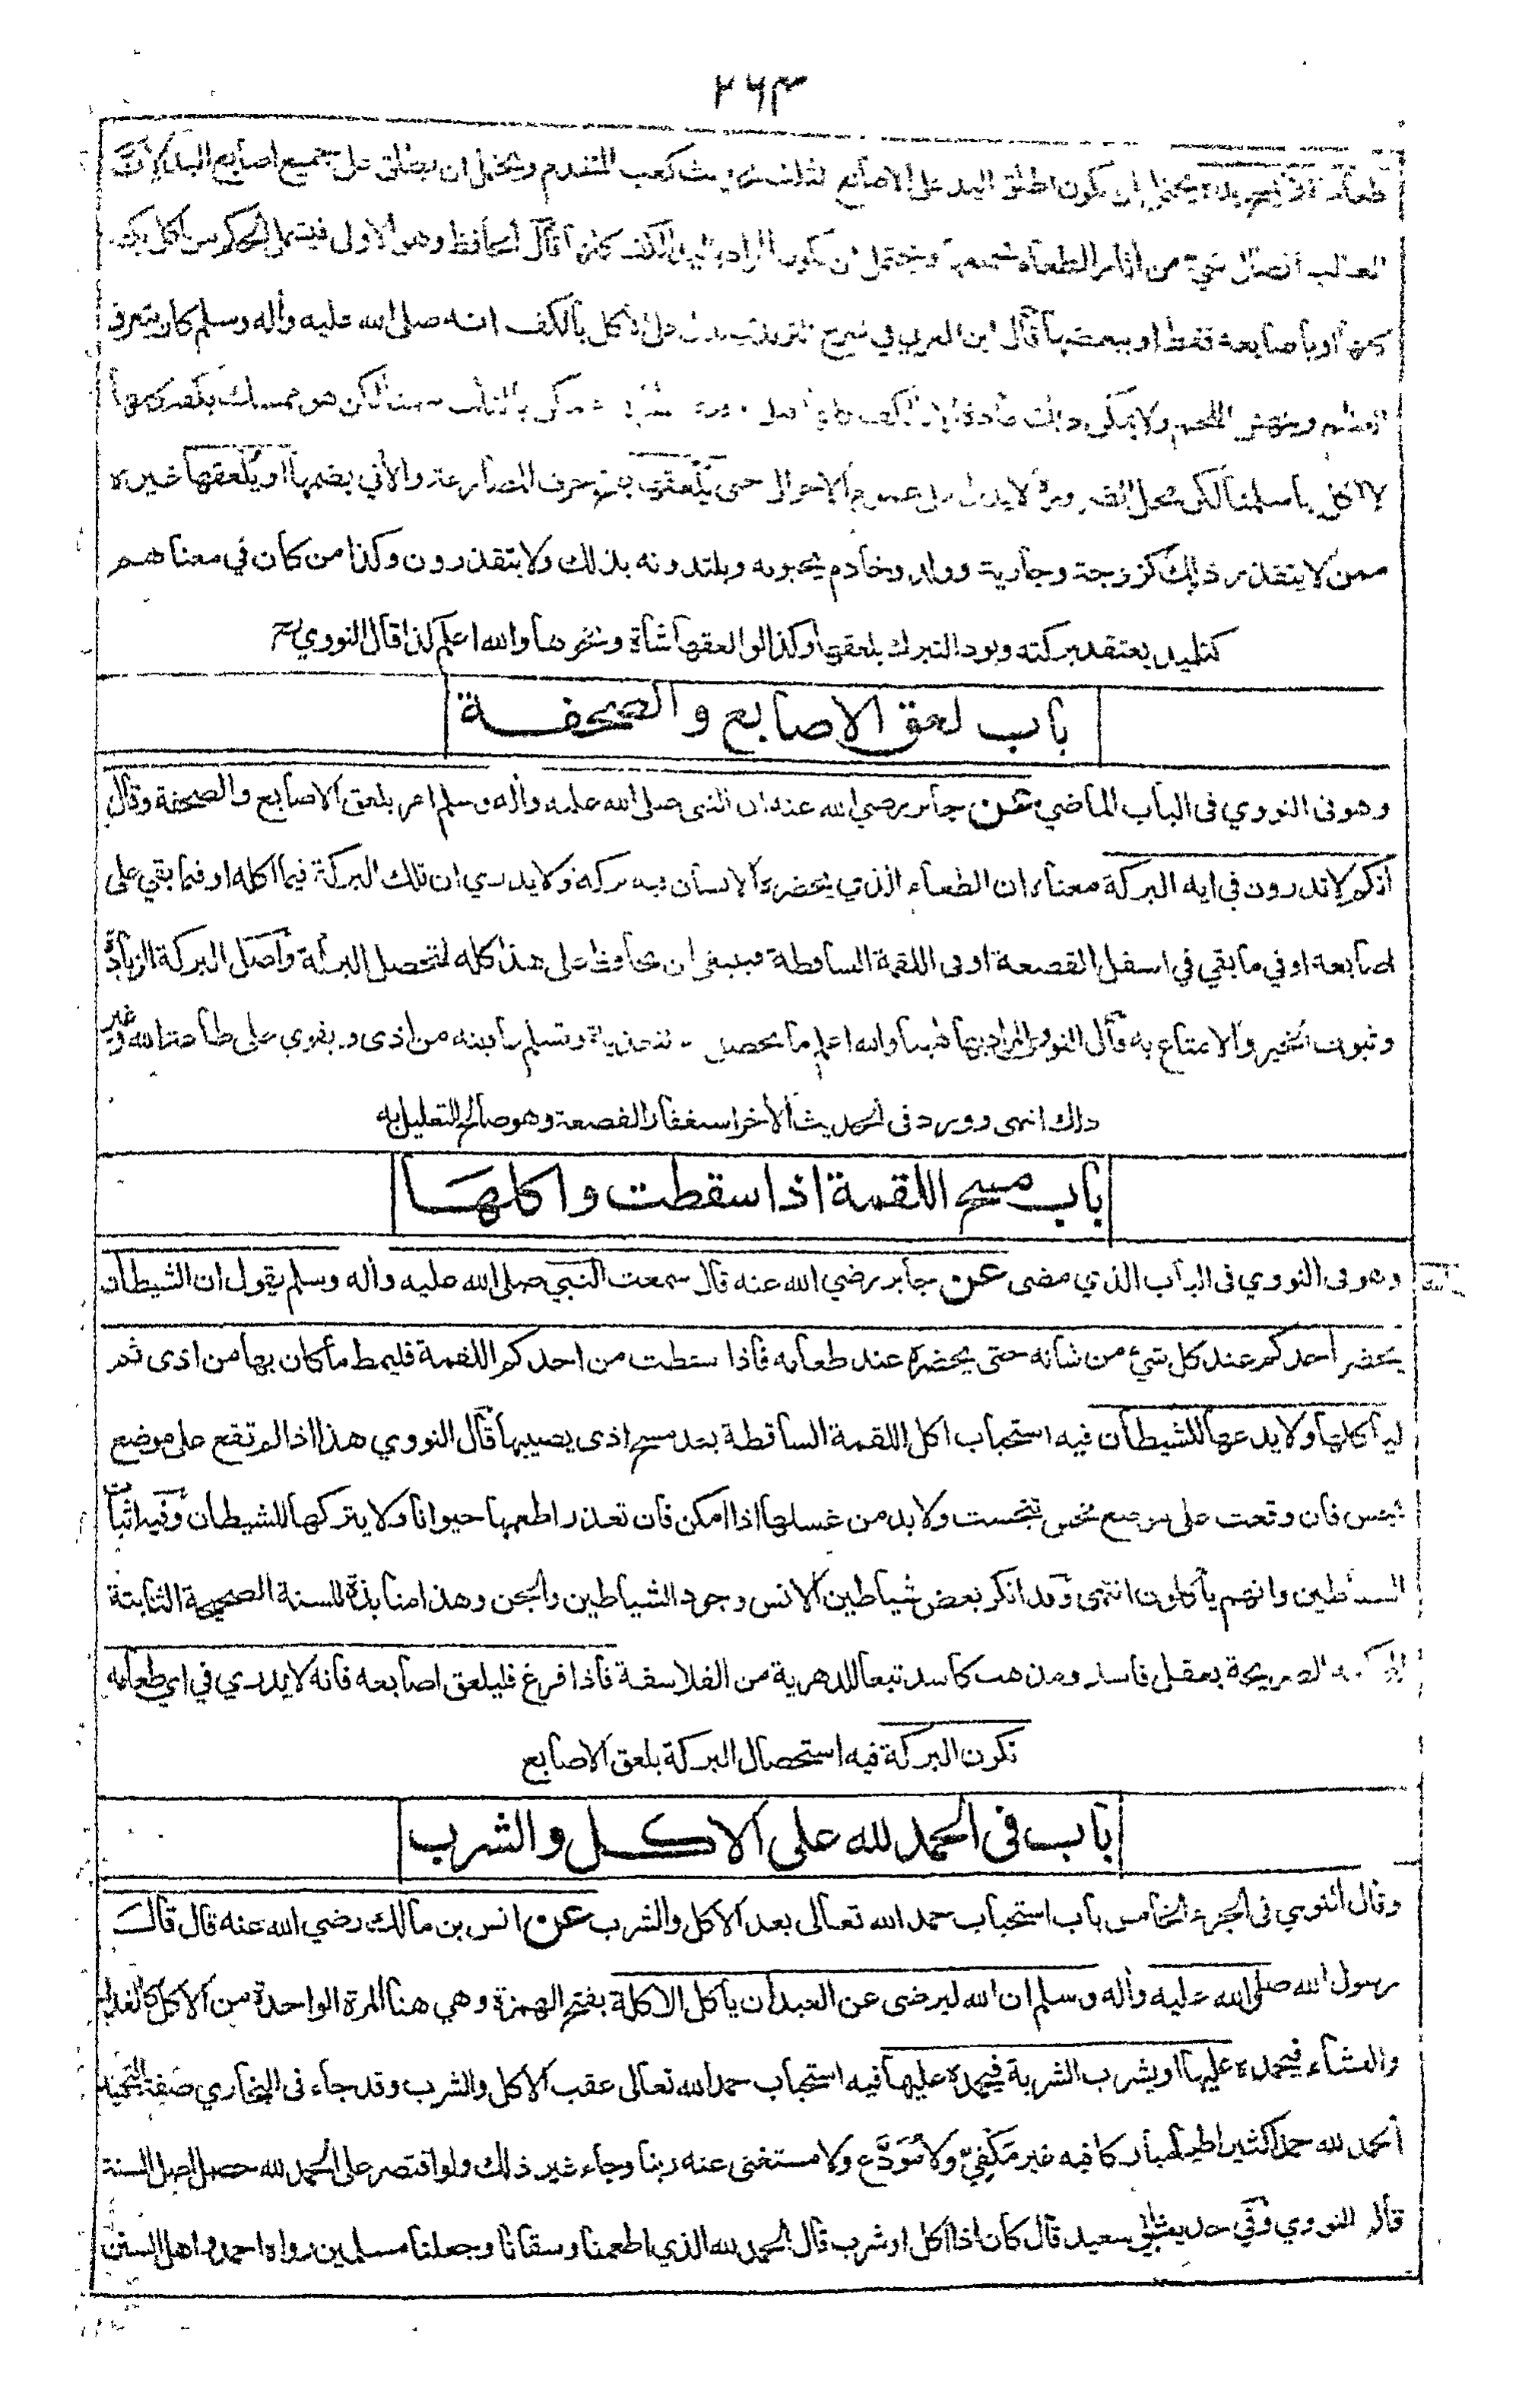 ٢٦٣
طعاما فلا يمسح يده يحتمل ان يكون اطلق اليد على الاصابع الثلث لحديث كعب المتقدم ويحتمل ان يطلق على جميع اصابع اليد لان
الغالب اتصال شيء من اثار الطعام بجميعها ويحتمل ان يكون المراد باليد الكف كلها قال الحافظ وهو الاولى فيشمل الحكم من اكل بكفه
كلها او باصابعه فقط او ببعضها قال ابن العربي في شرح الترمذي يدل على الاكل بالكف انه صلى الله عليه وأله وسلم كان يتعرق
العظم وينهش اللحم ولا يمكن ذلك عادة الا بالكف كلها بالثلث سلمنا لكن هو ممسك بكفه كلها
لا اكل بها سلمنا لكن محل الضرورة لا يدل على عموم الاحوال حتى يلعقها بفتح حرف المضارعة والأني بضمها او يلعقها غيره
ممن لا يتقذر ذلك كزوجة وجارية وولد وخادم يحبونه ويلتذونه بذلك ولا يتقذرون وكذا من كان في معناهم
كتلميذ يعتقد بركته ويود التبرك بلعقها وكذا لو العقها شاة ونحوها والله اعلم كذا قال النووي رح
باب لعق الاصابع والصحفة
وهو فى النووي فى الباب الماضي عن جابر رضي الله عنه ان النبى صلى الله عليه وأله وسلم امر بلعق الاصابع والصحفة وقال
انكم لا تدرون فى ايه البركة معناه ان الطعام الذي يحضره الانسان فيه بركة ولا يدري ان تلك البركة فيما اكله او فيما بقي على
اصابعه او في ما بقي في اسفل القصعة او فى اللقمة الساقطة فينبغى ان يحافظ على هذا كله لتحصل البركة واصل البركة الزيادة
وثبوت الخير والامتاع به قال النووي المراد بها هنا والله اعلم ما يحصل به التغذية وتسلم عاقبته من اذى ويقوي على طاعة الله وغير
ذلك انتهى وورد فى الحديث الأخر استغفار القصعة وهو صالح للتعليل به
باب مسح اللقمة اذا سقطت واكلها
وهو فى النووي فى الباب الذي مضى عن جابر رضي الله عنه قال سمعت النبي صلى الله عليه وأله وسلم يقول ان الشيطان
يحضر احدكم عند كل شيء من شأنه حتى يحضره عند طعامه فاذا سقطت من احدكم اللقمة فليمط ما كان بها من اذى ثم
ليأكلها ولا يدعها للشيطان فيه استحباب اكل اللقمة الساقطة بعد مسح اذى يصيبها قال النووي هذا اذا لم تقع على موضع
نجس فان وقعت على موضع نجس تنجست ولا بد من غسلها اذا امكن فان تعذر اطعمها حيوانا ولا يتركها للشيطان وفيه اثبات
الشياطين وانهم يأكلون انتهى وقد انكر بعض شياطين الانس وجود الشياطين والجن وهذا منابذة للسنة الصحيحة الثابتة
المحكمة الصريحة بعقل فاسد ومذهب كاسد تبعا للدهرية من الفلاسفة فاذا فرغ فليلعق اصابعه فانه لا يدري في اي طعامه
تكون البركة فيه استحصال البركة بلعق الاصابع
باب فى الحمد لله على الاكل والشرب
وقال النووي فى الجزء الخامس باب استحباب حمد الله تعالى بعد الاكل والشرب عن انس بن مالك رضي الله عنه قال قال
رسول الله صلى الله عليه وأله وسلم ان الله ليرضى عن العبد ان يأكل الاكلة بفتح الهمزة وهي هنا المرة الواحدة من الاكل كالغداء
والعشاء فيحمده عليها او يشرب الشربة فيحمده عليها فيه استحباب حمد الله تعالى عقب الاكل والشرب وقد جاء فى البخاري صفة التحميد
الحمد لله حمدا كثيرا طيبا مباركا فيه غير مَكْفِيّ ولا مُوَدَّع ولا مستغنى عنه ربنا وجاء غير ذلك ولو اقتصر على الحمد لله حصل اصل السنة
قاله النووي وفي حديث ابي سعيد قال كان اذا اكل او شرب قال الحمد لله الذي اطعمنا وسقانا وجعلنا مسلمين رواه احمد واهل السنن